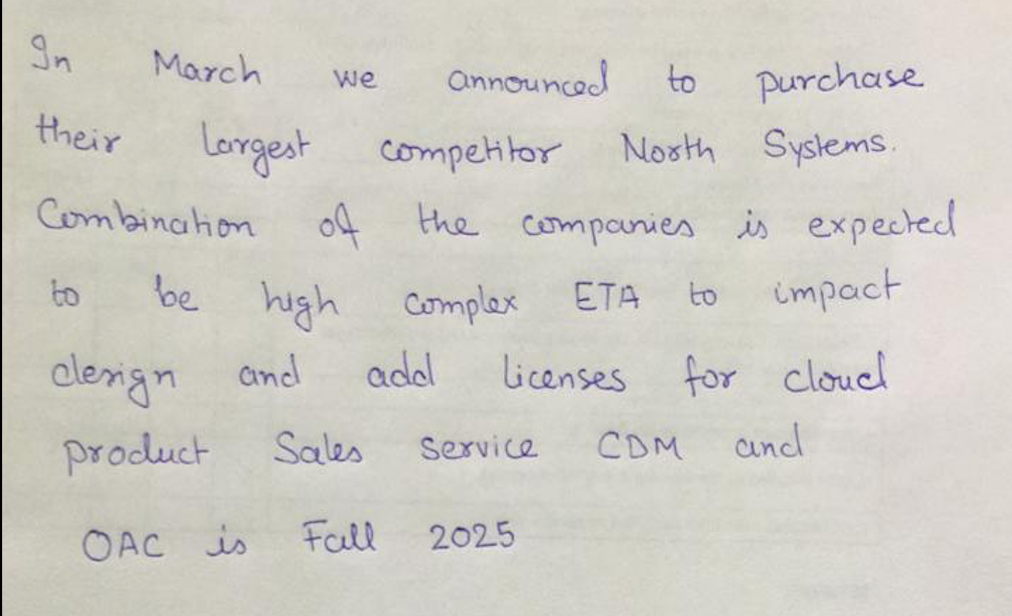 In March we announced to purchase
their largest competitor North Systems.
Combination of the companies is expected
to be high complex ETA to impact
design and add licenses for cloud
product Sales service CDM and
OAC is Fall 2025